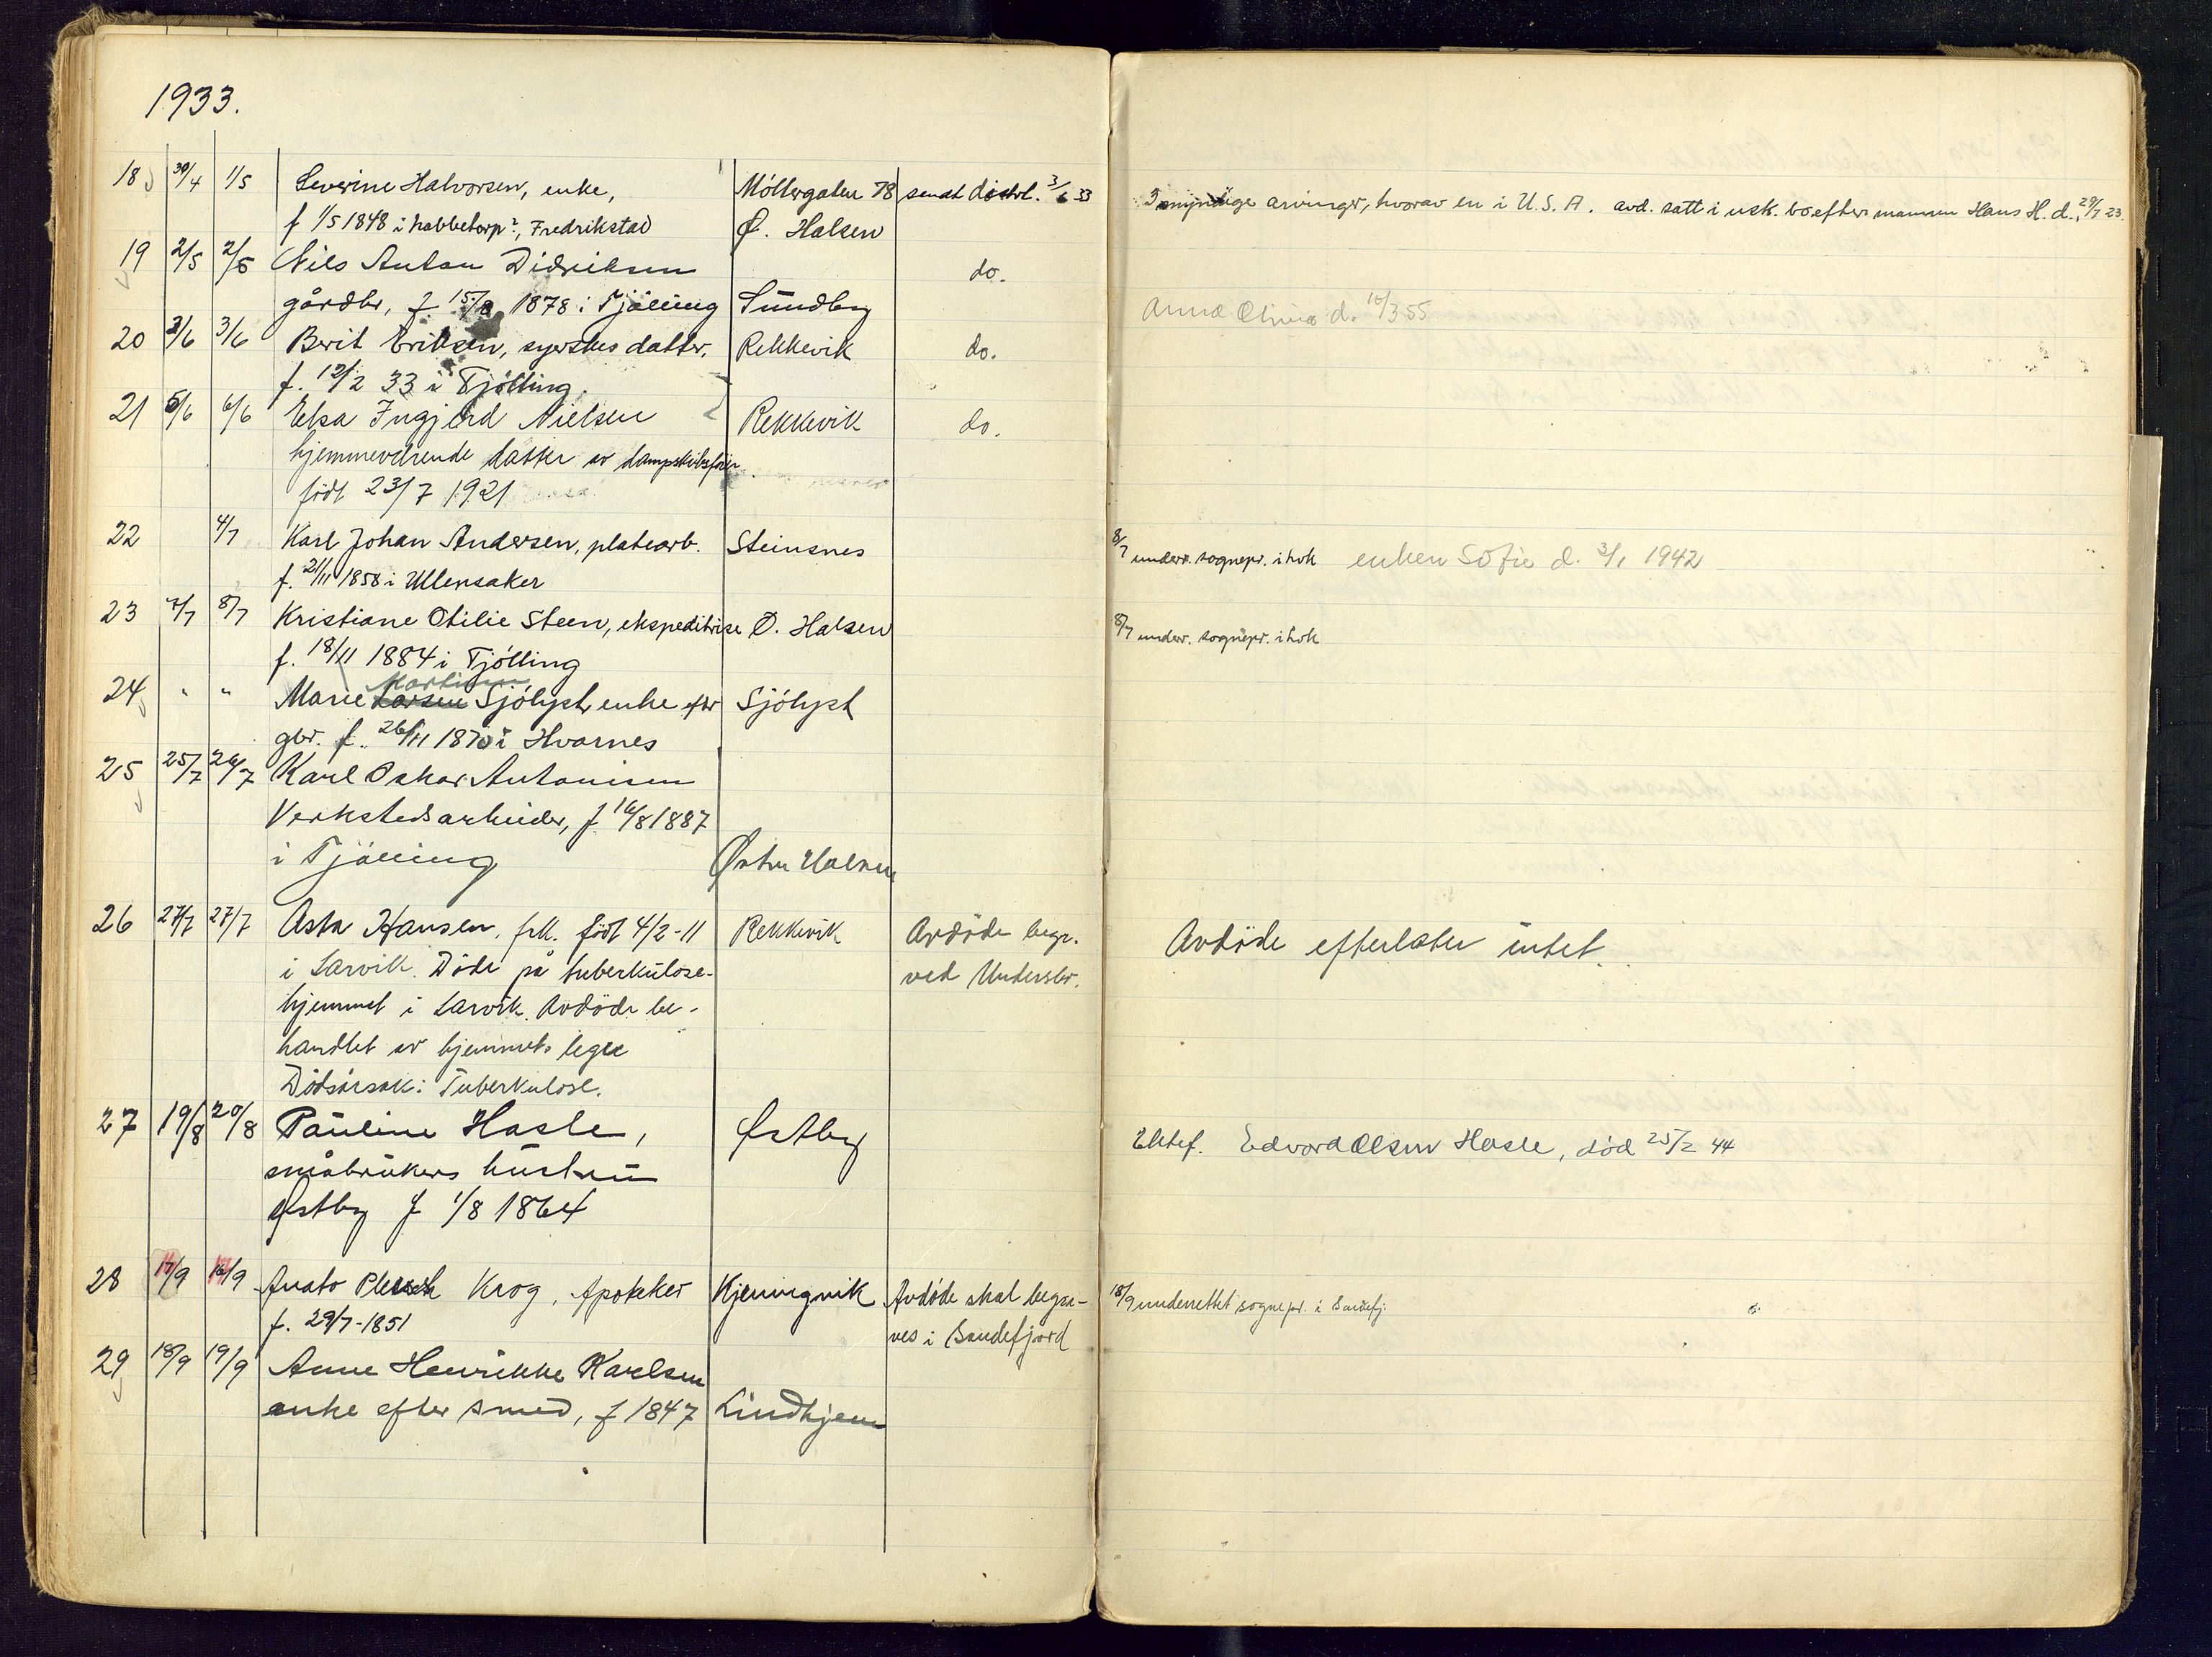 1933.
18 30/4 1/5 Severine Halvorsen, enke, Möllergaten 78 sendt distrl. 3/6 33 3 myndige arvinger, hvorav en i U.S.A. avd. satt i usk. bo efter mannen Hans H. d. 29/7 23.
f 1/5 1848 i habbetorp?, Fredrikstad Ø. Halsen
19 2/5 2/5 Nils Anton Didriksen do.
gårdbr, f 15/8 1878 i Tjölling Sundby Anna Olivia d. 10/3 55
20 2/6 3/6 Berit Eriksen, syerskes datter, Rekkevik do.
f. 12/2 33 i Tjölling.
21 5/6 6/6 Elsa Ingjerd Nielsen Rekkevik do.
hjemmeværende datter av dampskibsförer
födt 23/7 1921
22 4/7 Karl Johan Andersen, platearb. Steinsnes 8/7 underr. sognepr. i hvk enken Sofie d. 3/1 1942
f. 21/11 1858 i Ullensaker
23 7/7 8/7 Kristiane Otilie Steen, ekspeditrise Ø. Halsen 8/7 underr. sognepr. i hvk
f. 18/11 1884 i Tjölling
Martinsen
24 " " Marie Larsen Sjölyst, enke efter Sjölyst
gbr. f. 26/11 1870 i Hvarnes
25 25/7 26/7 Karl Oskar Antonisen
Verkstedsarbeider, f 16/8 1887
i Tjölling Østre Halsen
26 27/7 27/7 Asta Hansen, frk. født 4/2-11 Rekkevik Avdöde begr. Avdöde efterlater intet.
i Larvik. Döde på tuberkulose- ved Undersbr.
hjemmet i Larvik. Avdöde be-
handlet av hjemmets lege
Dödsårsak: Tuberkulose.
27 19/8 20/8 Pauline Hasle, Østby Ektef. Edvard Olsen Hasle, död 25/2 44
småbrukers hustru
Østby f 1/8 1864
28 17/9 18/9 Krog, Apoteker Kjerringvik Avdöde skal begra- 18/9 underrettet sognepr. i Sandefj.
f. 29/7-1851 ves i Sandefjord
29 18/9 19/9 Anne Henrikke Karlsen
enke efter smed, f 1847 Lindhjem